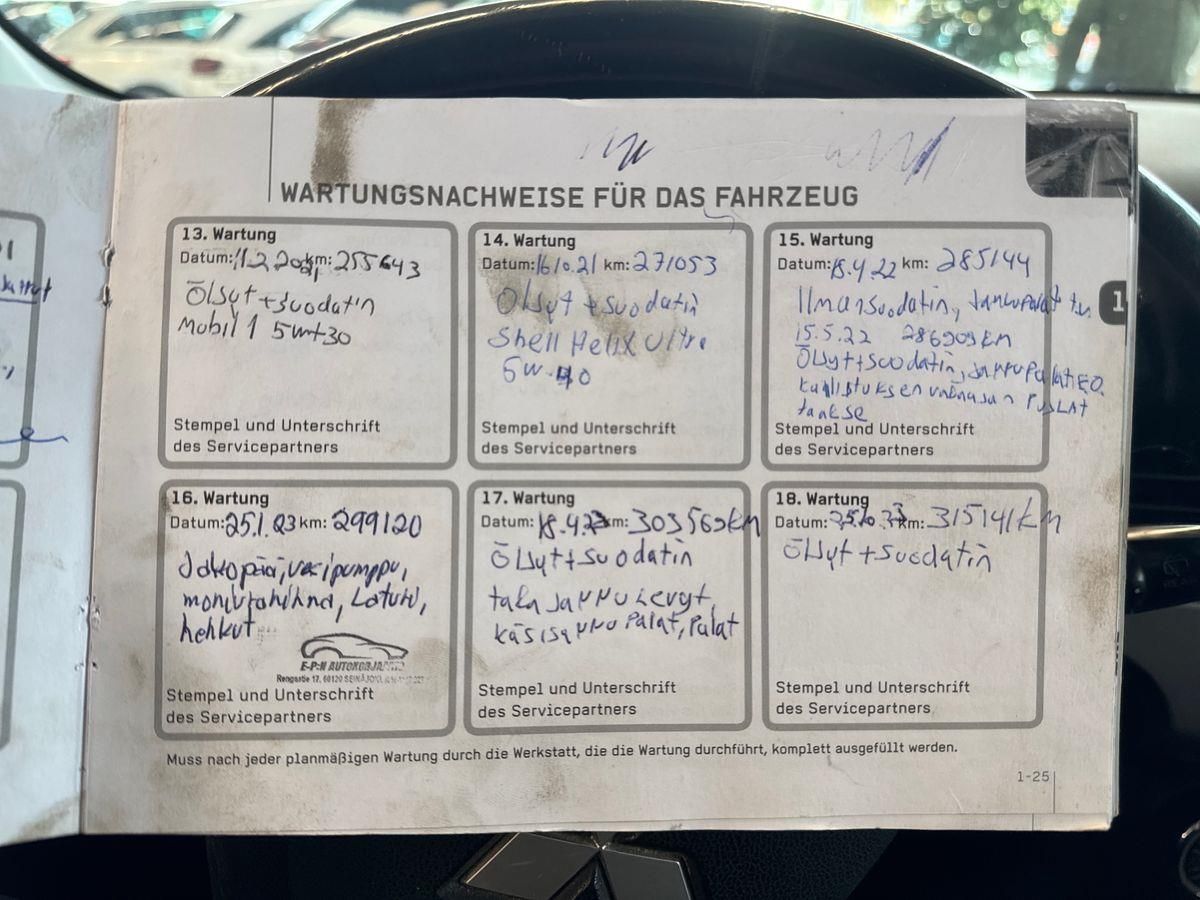 WARTUNGSNACHWEISE FÜR DAS FAHRZEUG
13. Wartung
Datum: 11.2.2021 km: 255643
Öljyt + suodatin
Mobil 1 5w+30
Stempel und Unterschrift
des Servicepartners
14. Wartung
Datum: 16.10.21 km: 271053
Öljyt + suodatin
Shell Helix Ultra
5w-40
Stempel und Unterschrift
des Servicepartners
15. Wartung
Datum: 18.4.22 km: 285144
Ilmansuodatin, Jarrupalat
15.5.22 286909 KM
Öljyt + suodatin, Jarrupalat EO.
taakse
Stempel und Unterschrift
des Servicepartners
16. Wartung
Datum: 25.1.23 km: 299120
Jakopää, vesipumppu,
moniurahihna, Laturi,
hehkut
E-P:N AUTOKORJAAMO
Rengastie 17, 60120 SEINÄJOKI
Stempel und Unterschrift
des Servicepartners
17. Wartung
Datum: 18.4.23 km: 303569 KM
Öljyt + suodatin
taka jarru levyt
käsijarru palat, Palat
Stempel und Unterschrift
des Servicepartners
18. Wartung
Datum: 25.10.23 km: 315141 KM
Öljyt + suodatin
Stempel und Unterschrift
des Servicepartners
Muss nach jeder planmäßigen Wartung durch die Werkstatt, die die Wartung durchführt, komplett ausgefüllt werden.
1-25
1